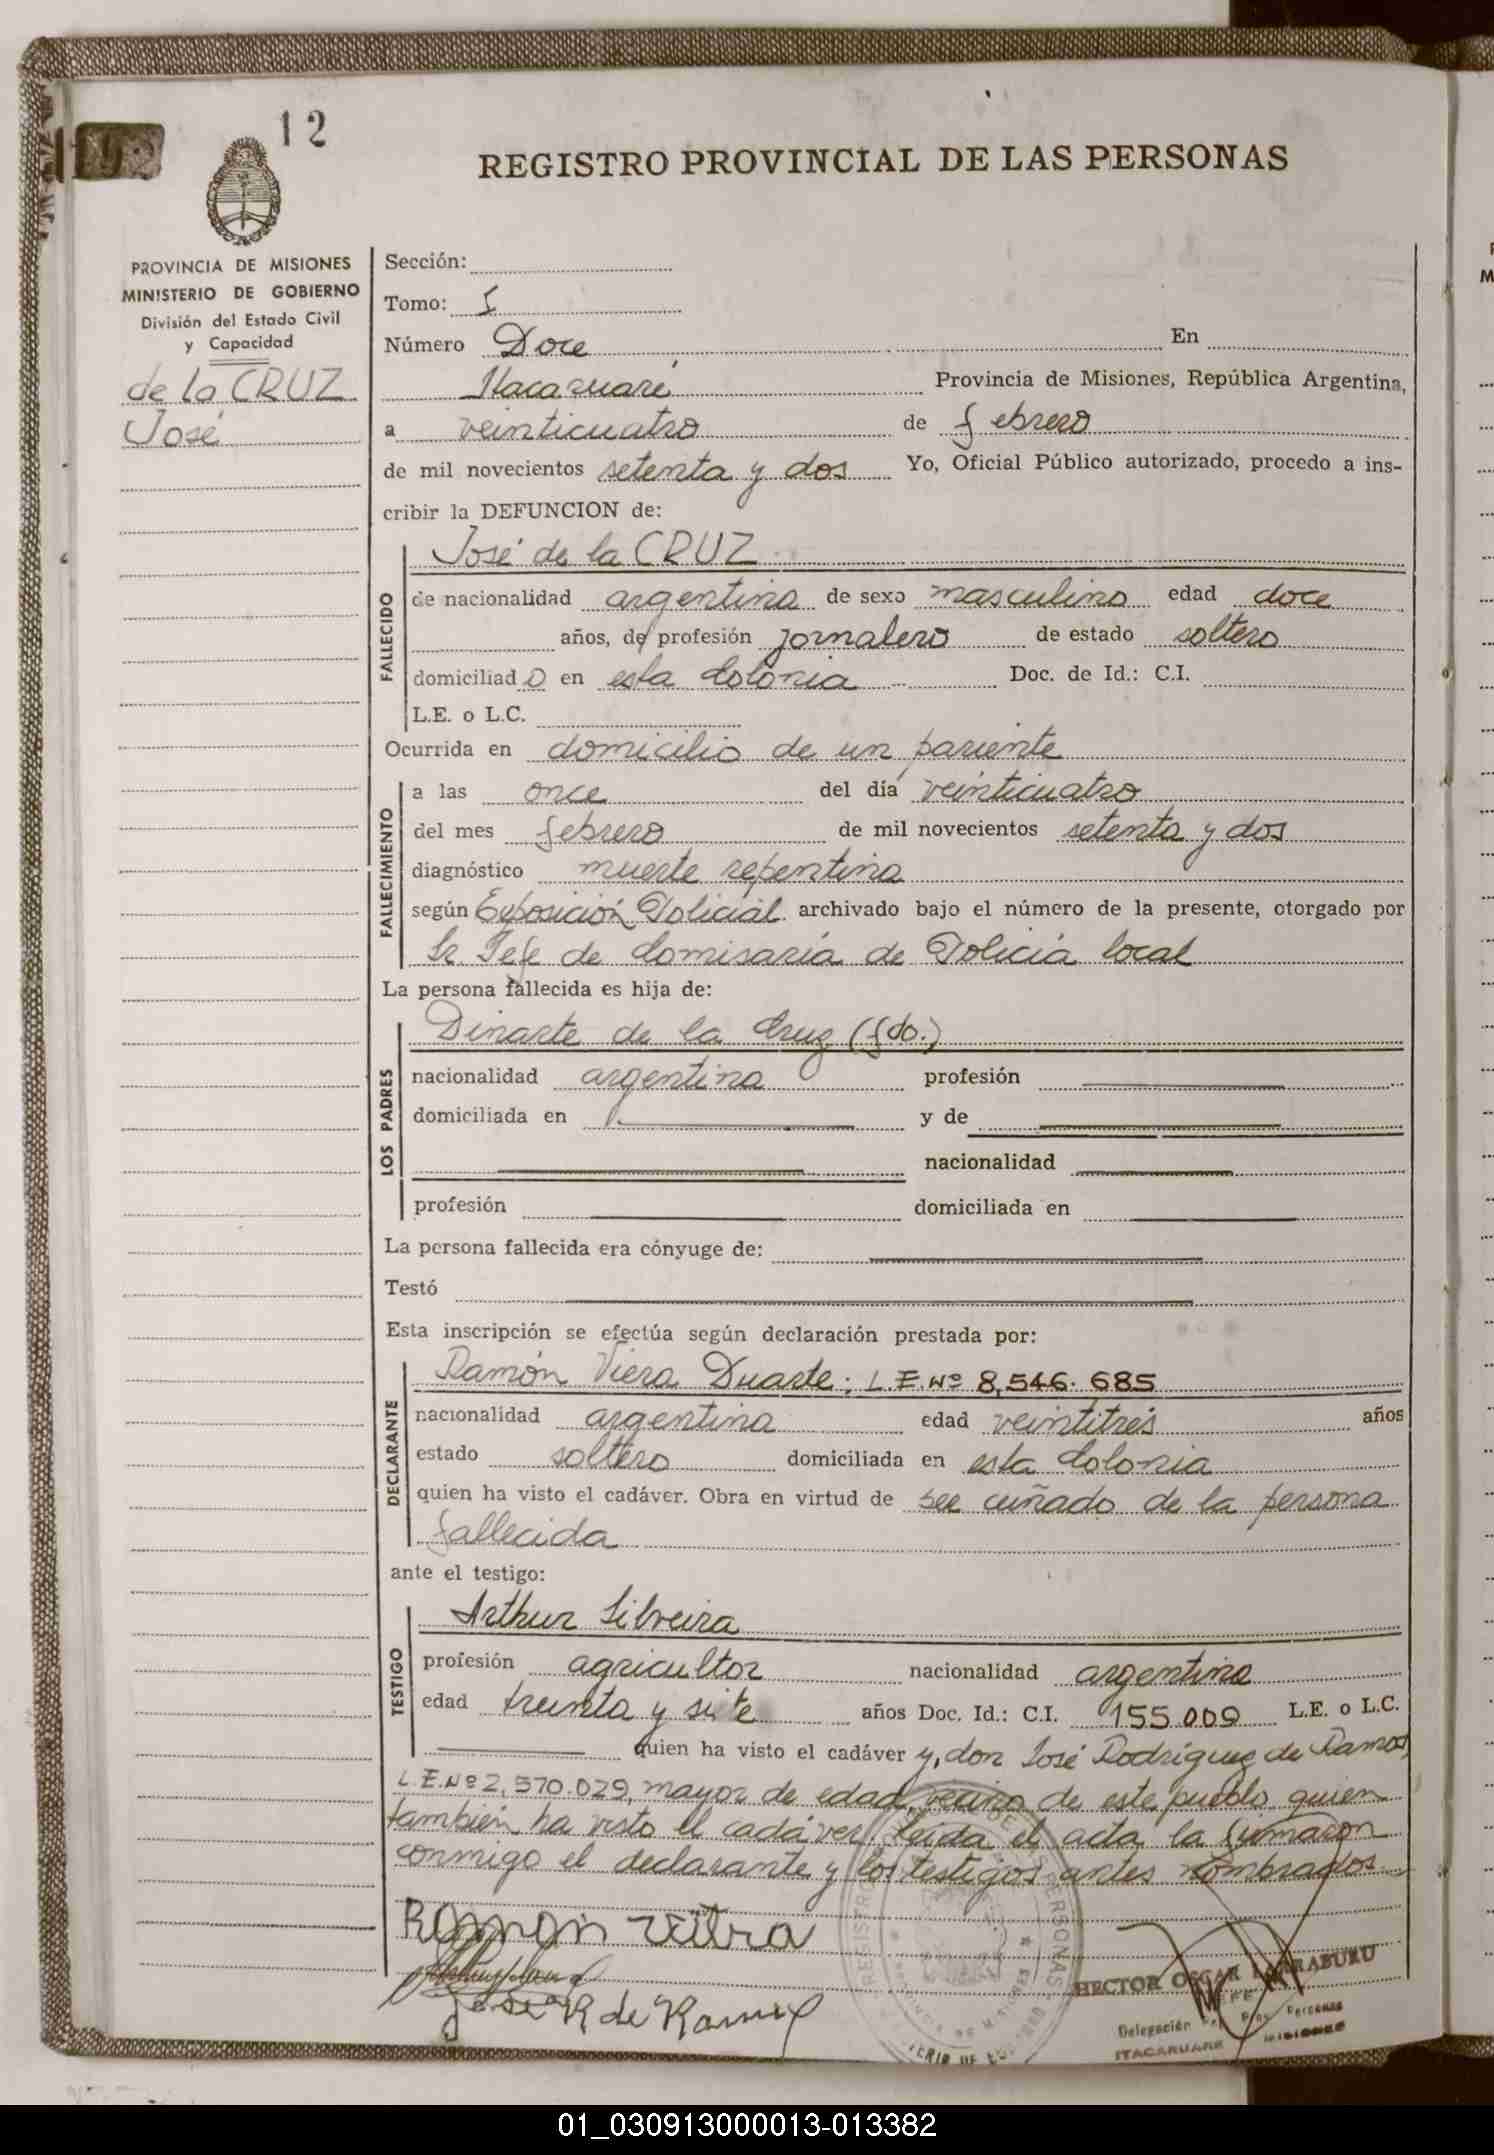 12
REGISTRO PROVINCIAL DE LAS PERSONAS
PROVINCIA DE MISIONES
MINISTERIO DE GOBIERNO
División del Estado Civil
y Capacidad
de la CRUZ
José
Sección:
Tomo: I
Número Doce En
Itacaruaré Provincia de Misiones, República Argentina,
a veinticuatro de febrero
de mil novecientos setenta y dos Yo, Oficial Público autorizado, procedo a ins-
cribir la DEFUNCION de:
FALLECIDO
José de la CRUZ
de nacionalidad argentina de sexo masculino edad doce
años, de profesión jornalero de estado soltero
domiciliado en esta Colonia Doc. de Id.: C.I.
L.E. o L.C.
Ocurrida en domicilio de un pariente
FALLECIMIENTO
a las once del día veinticuatro
del mes febrero de mil novecientos setenta y dos
diagnóstico muerte repentina
según Exposición Policial archivado bajo el número de la presente, otorgado por
Sr Jefe de Comisaría de Policía local
La persona fallecida es hija de:
LOS PADRES
Dinarte de la Cruz (fdo.)
nacionalidad argentina profesión
domiciliada en y de
nacionalidad
profesión domiciliada en
La persona fallecida era cónyuge de:
Testó
Esta inscripción se efectúa según declaración prestada por:
DECLARANTE
Ramón Viera Duarte; L.E. Nº 8,546.685
nacionalidad argentina edad veintitrés años
estado soltero domiciliada en esta Colonia
quien ha visto el cadáver. Obra en virtud de ser cuñado de la persona
fallecida
ante el testigo:
TESTIGO
Arthur Silveira
profesión agricultor nacionalidad argentina
edad treinta y siete años Doc. Id.: C.I. 155.009 L.E. o L.C.
quien ha visto el cadáver y, don José Rodríguez de Ramos
L.E. Nº 2,570.029, mayor de edad, vecino de este pueblo quien
también ha visto el cadáver, leída el acta la firmaron
conmigo el declarante y los testigos antes nombrados.
Ramon
José R de Ramos
HECTOR OSCAR
JEFE
Delegación Reg. Prov. Personas
ITACARUARE MISIONES
01_030913000013-013382